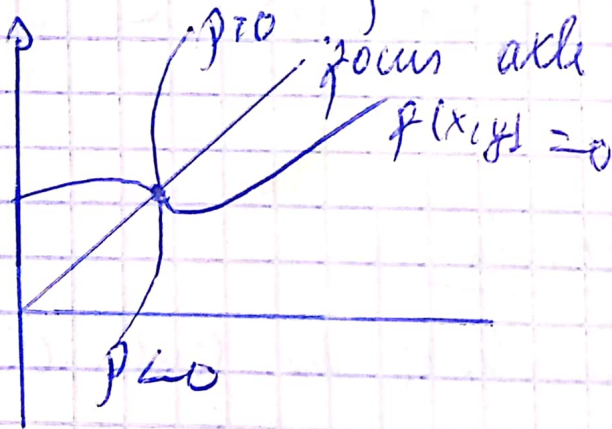 p>0
focus axle
f(x,y) = 0
p<0